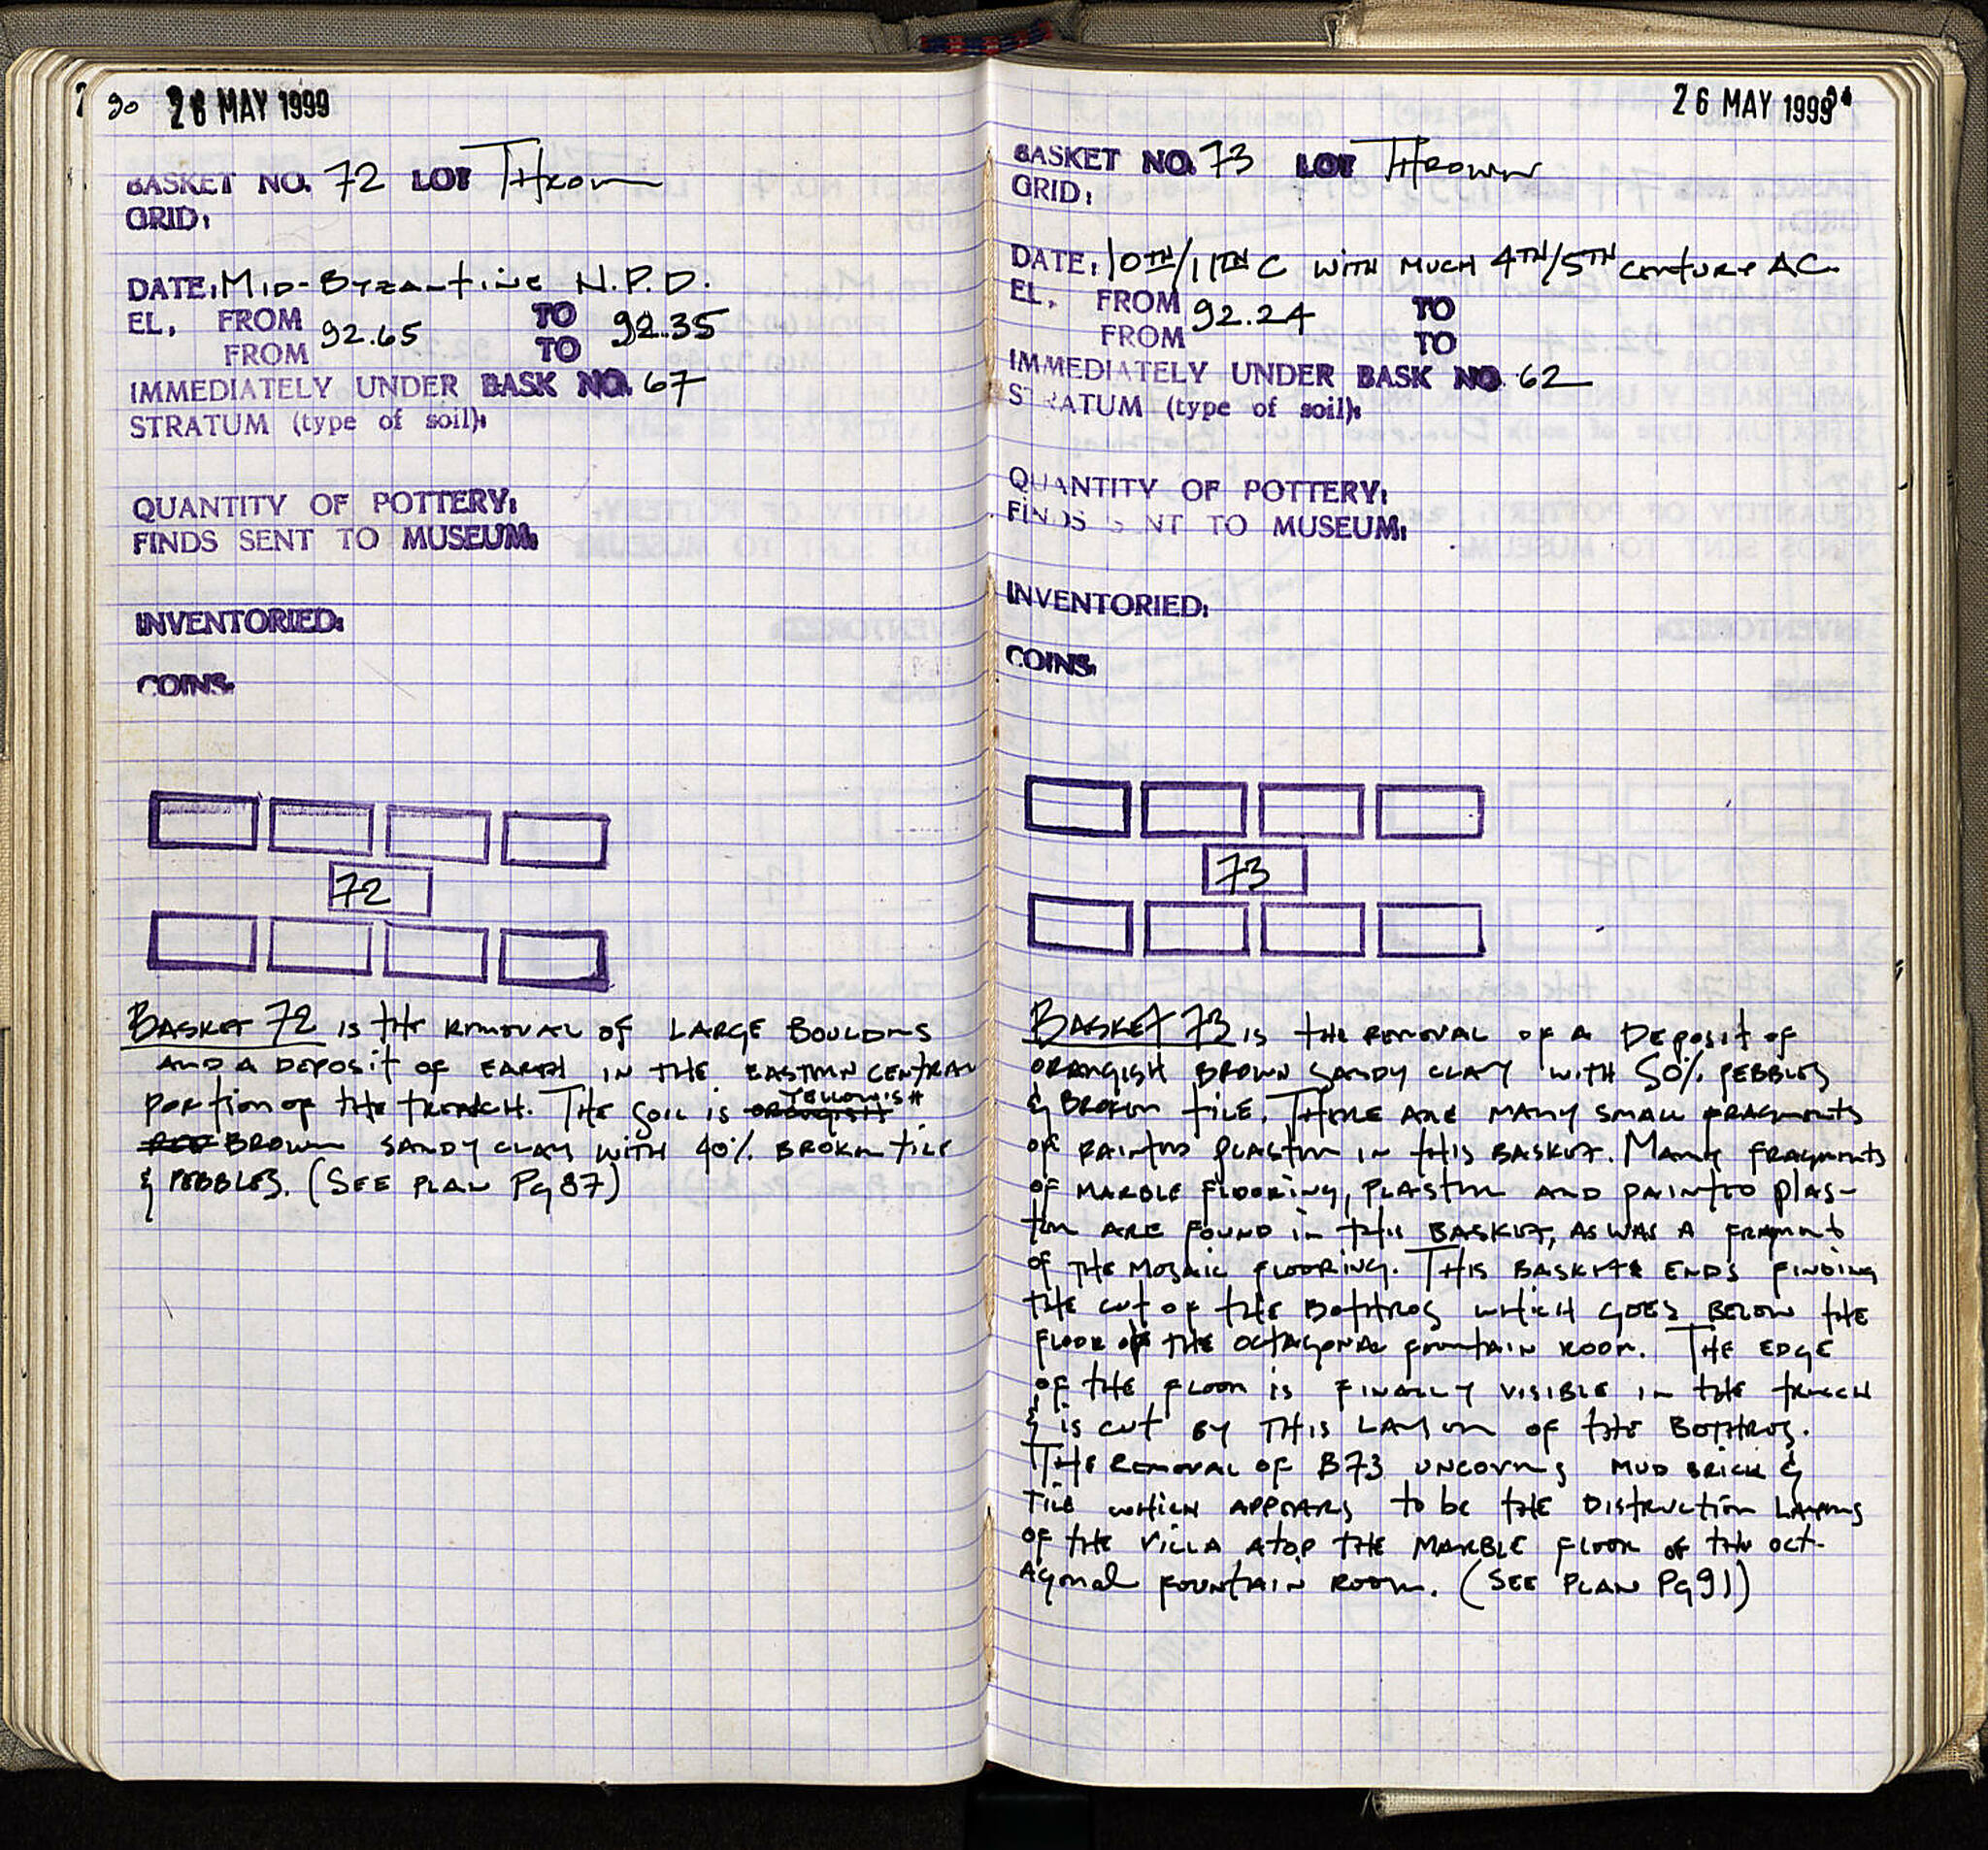 90 26 MAY 1999
BASKET NO. 72 LOT THROWN
GRID:
DATE: MID-BYZANTINE N.P.D.
EL. FROM 92.65 TO 92.35
FROM TO
IMMEDIATELY UNDER BASK NO. 67
STRATUM (type of soil):
QUANTITY OF POTTERY:
FINDS SENT TO MUSEUM:
INVENTORIED:
COINS:
72
BASKET 72 IS THE REMOVAL OF LARGE BOULDERS
AND A DEPOSIT OF EARTH IN THE EASTERN CENTRAL
PORTION OF THE TRENCH. THE SOIL IS ORANGISH YELLOWISH
RED BROWN SANDY CLAY WITH 40% BROKEN TILE
& PEBBLES. (SEE PLAN Pg 87)
26 MAY 1999
BASKET NO. 73 LOT THROWN
GRID:
DATE: 10TH/11TH C WITH MUCH 4TH/5TH CENTURY AC.
EL. FROM 92.24 TO
FROM TO
IMMEDIATELY UNDER BASK NO 62
STRATUM (type of soil):
QUANTITY OF POTTERY:
FINDS SENT TO MUSEUM:
INVENTORIED:
COINS:
73
BASKET 73 IS THE REMOVAL OF A DEPOSIT OF
ORANGISH BROWN SANDY CLAY WITH 50% PEBBLES
& BROKEN TILE. THERE ARE MANY SMALL FRAGMENTS
OF PAINTED PLASTER IN THIS BASKET. MANY FRAGMENTS
OF MARBLE FLOORING, PLASTER AND PAINTED PLAS-
TER ARE FOUND IN THIS BASKET, AS WAS A FRAGMENT
OF THE MOSAIC FLOORING. THIS BASKET ENDS FINDING
THE CUT OF THE BOTHROS WHICH GOES BELOW THE
FLOOR OF THE OCTAGONAL FOUNTAIN ROOM. THE EDGE
OF THE FLOOR IS FINALLY VISIBLE IN THE TRENCH
& IS CUT BY THIS LAYER OF THE BOTHROS.
THE REMOVAL OF B73 UNCOVERS MUD BRICK &
TILE WHICH APPEARS TO BE THE DISTRUCTION LAYERS
OF THE VILLA ATOP THE MARBLE FLOOR OF THE OCT-
AGONAL FOUNTAIN ROOM. (SEE PLAN Pg 91)